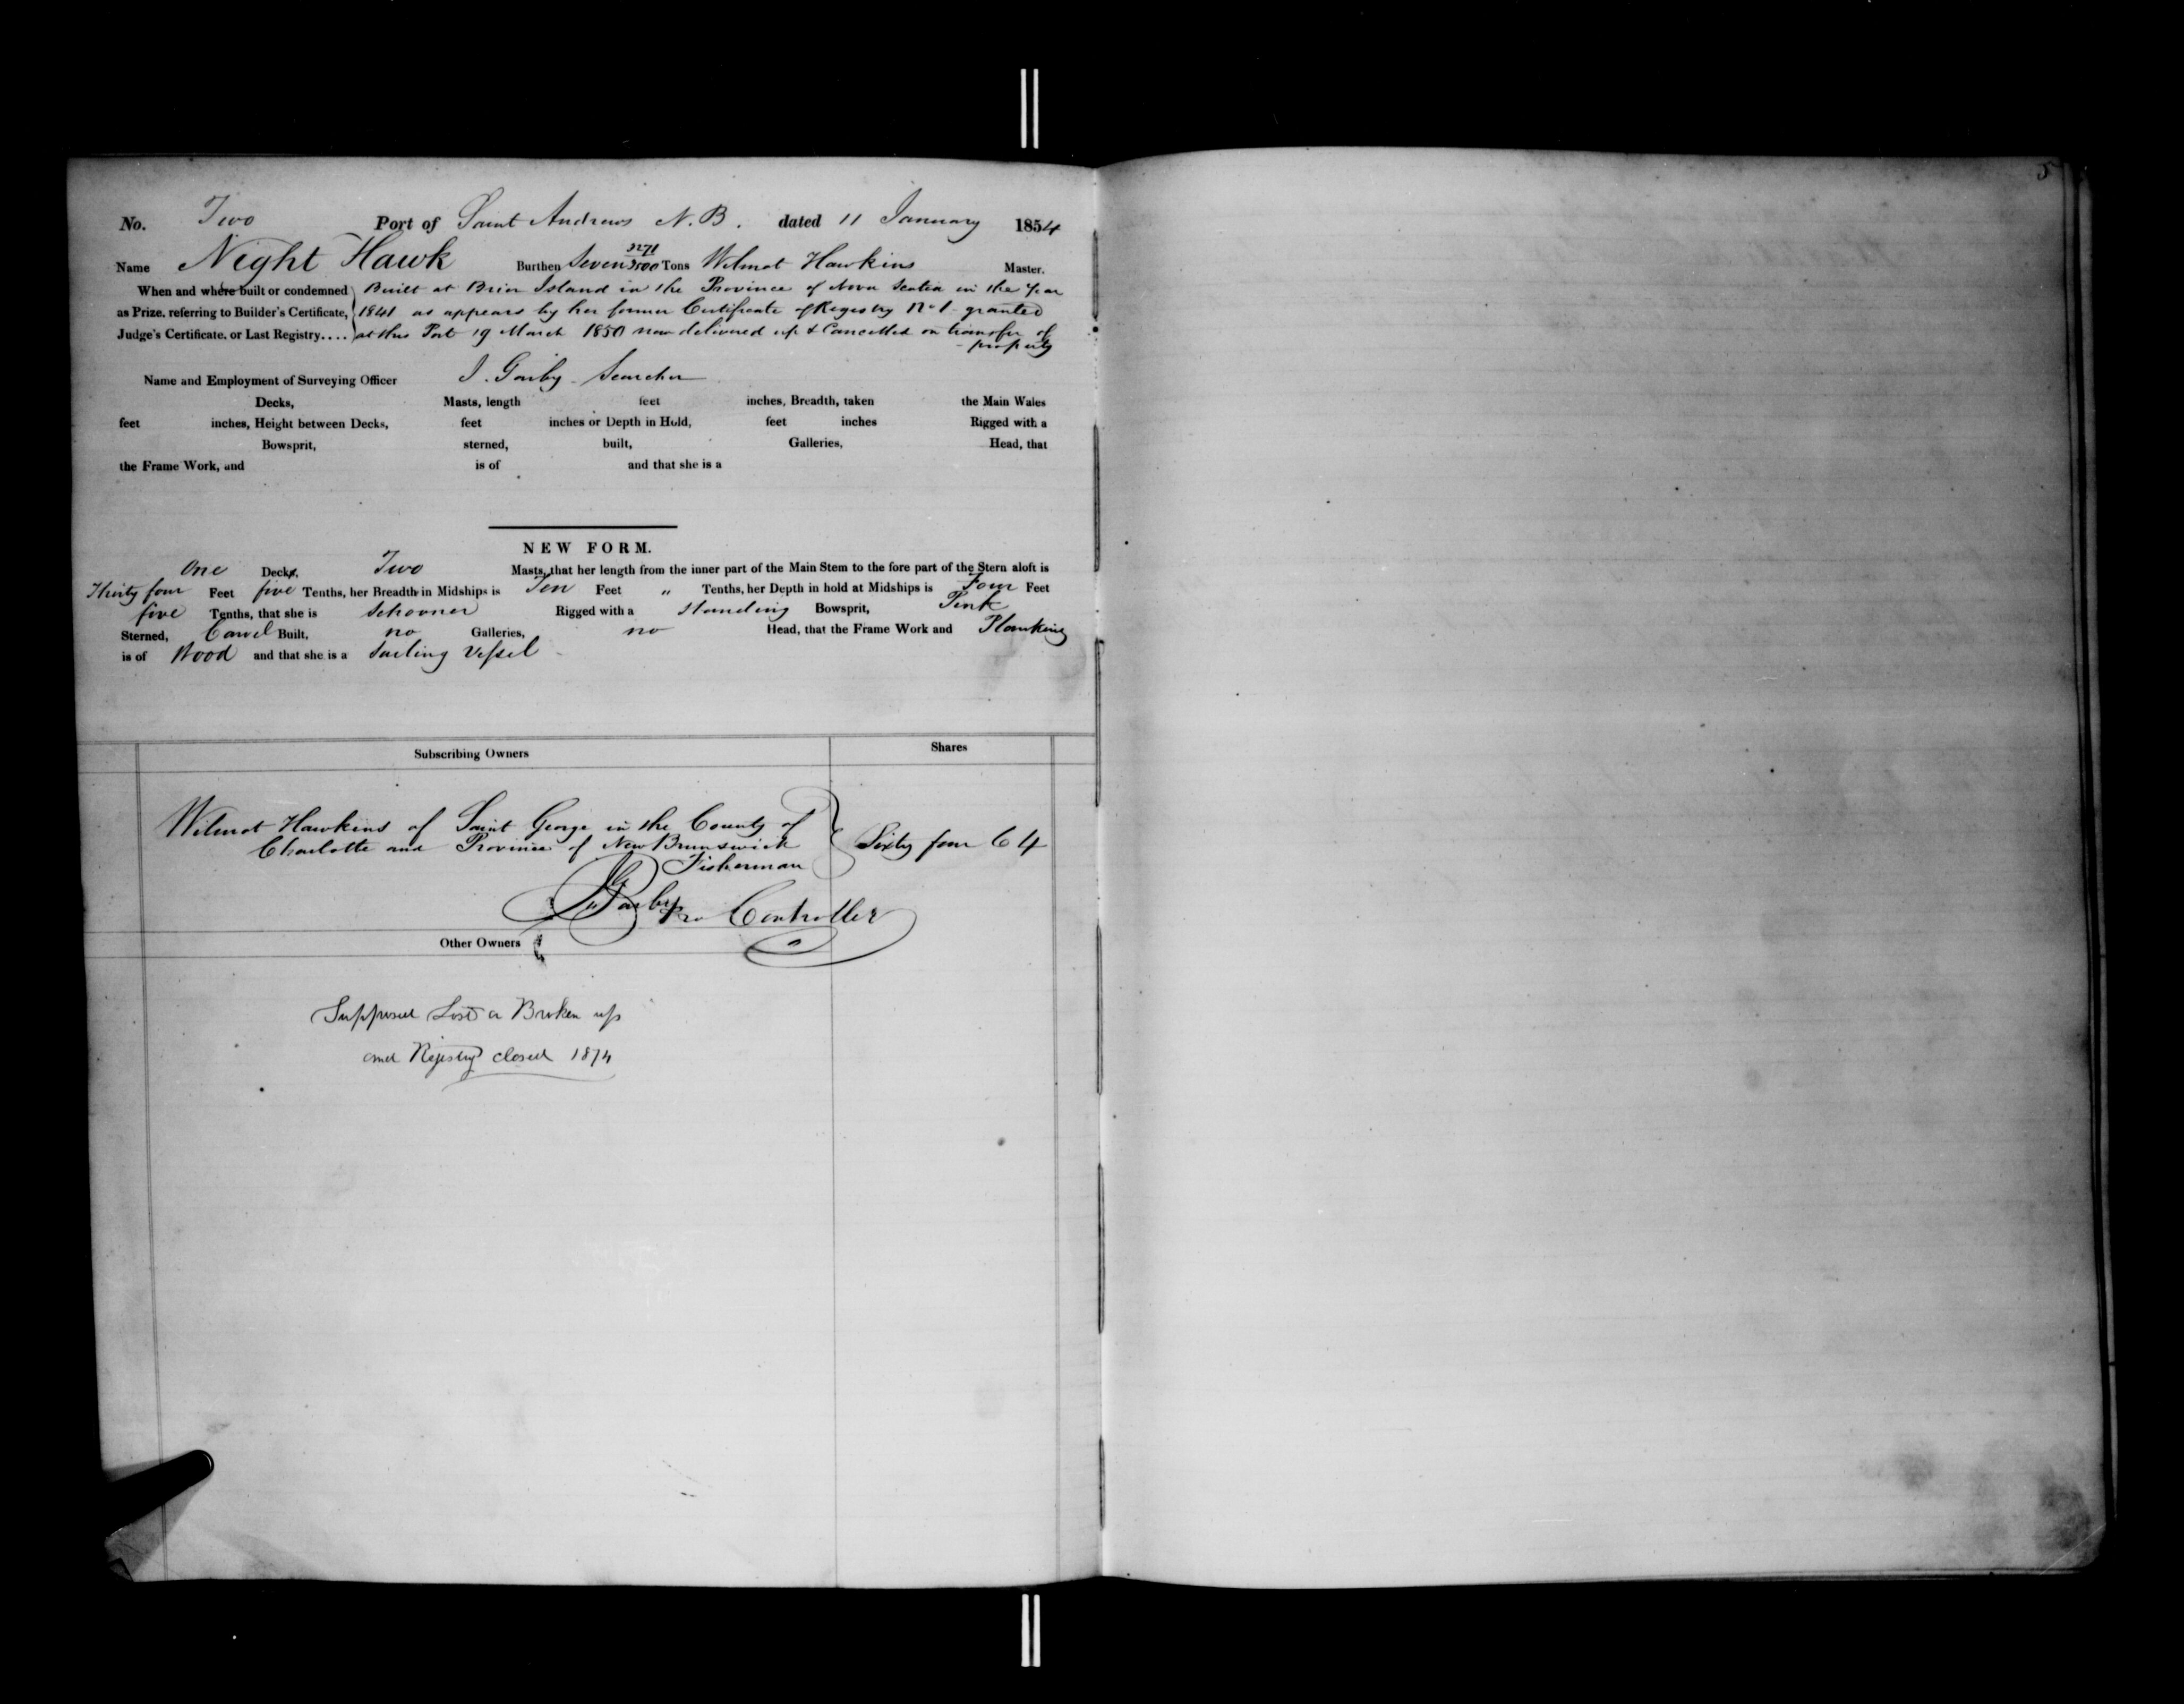 5
No. Two Port of Saint Andrews N.B. dated 11 January 1854
Name Night Hawk Burthen Seven 3271/3500 Tons Wilmot Hawkins Master.
When and where built or condemned Built at Brier Island in the Province of Nova Scotia in the Year
as Prize, referring to Builder's Certificate, 1841 as appears by her former Certificate of Registry No 1 granted
Judge's Certificate, or Last Registry.... at this Port 19 March 1850 now delivered up & Cancelled on transfer of
property
Name and Employment of Surveying Officer J. Garby Searcher
Decks, Masts, length feet inches, Breadth, taken the Main Wales
feet inches, Height between Decks, feet inches or Depth in Hold, feet inches Rigged with a
Bowsprit, sterned, built, Galleries, Head, that
the Frame Work, and is of and that she is a
NEW FORM.
One Decks, Two Masts, that her length from the inner part of the Main Stem to the fore part of the Stern aloft is
Thirty four Feet five Tenths, her Breadth in Midships is Ten Feet " Tenths, her Depth in hold at Midships is Four Feet
five Tenths, that she is Schooner Rigged with a standing Bowsprit, Pink
Sterned, Carvel Built, no Galleries, no Head, that the Frame Work and Planking
is of Wood and that she is a Sailing Vessel
Subscribing Owners Shares
Wilmot Hawkins of Saint George in the County of
Charlotte and Province of New Brunswick Sixty four 64
Fisherman
Pro Controller
Other Owners
Supposed Lost or Broken up
and Registry closed 1874